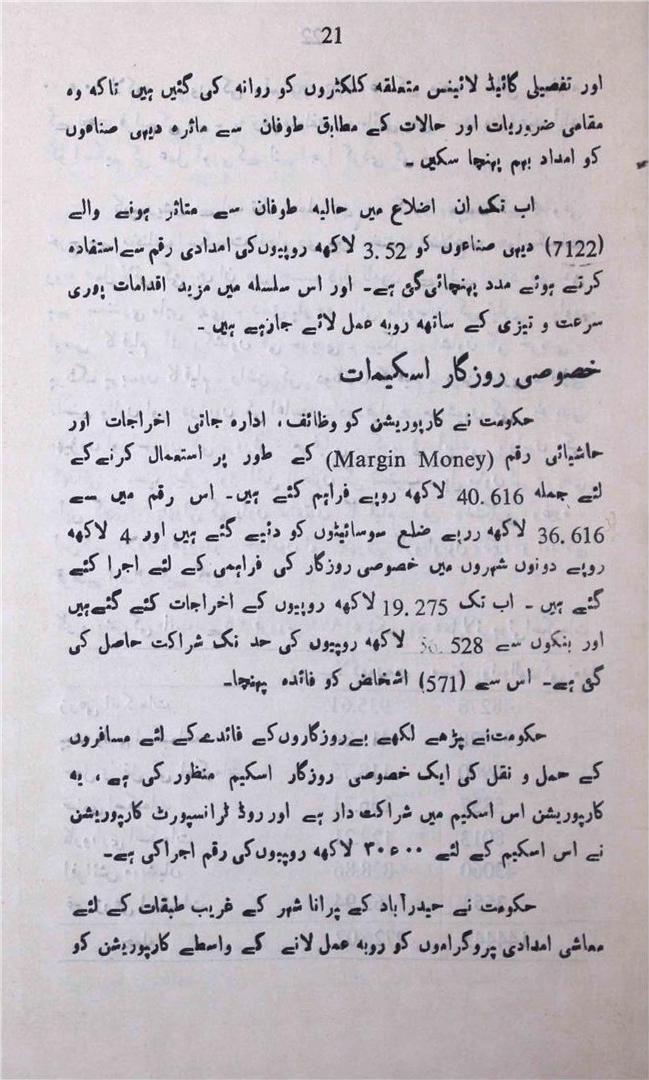 21
اور تفصیلی گائیڈ لائینس متعلقہ کلکٹروں کو روانہ کی گئیں ہیں تاکہ وہ
مقامی ضروریات اور حالات کے مطابق طوفان سے ماثرہ دیہی صناعوں
کو امداد بہم پہنچا سکیں ۔
اب تک ان اضلاع میں حالیہ طوفان سے متاثر ہونے والے
(7122) دیہی صناعوں کو 3.52 لاکھ روپیوں کی امدادی رقم سے استفادہ
کرتے ہوئے مدد پہنچائی گئی ہے۔ اور اس سلسلہ میں مزید اقدامات پوری
سرعت و تیزی کے ساتھ روبہ عمل لائے جارہے ہیں ۔
خصوصی روزگار اسکیمات
حکومت نے کارپوریشن کو وظائف، ادارہ جاتی اخراجات اور
حاشیائی رقم (Margin Money) کے طور پر استعمال کرنے کے
لئے جملہ 40.616 لاکھ روپے فراہم کئے ہیں۔ اس رقم میں سے
36.616 لاکھ روپے ضلع سوسائیٹوں کو دئیے گئے ہیں اور 4 لاکھ
روپے دونوں شہروں میں خصوصی روزگار کی فراہمی کے لئے اجرا کئے
گئے ہیں ۔ اب تک 19.275 لاکھ روپیوں کے اخراجات کئے گئے ہیں
اور بنکوں سے 528 لاکھ روپیوں کی حد تک شراکت حاصل کی
گئی ہے۔ اس سے (571) اشخاص کو فائدہ پہنچا۔
حکومت نے پڑھے لکھے بے روزگاروں کے فائدے کے لئے مسافروں
کے حمل و نقل کی ایک خصوصی روزگار اسکیم منظور کی ہے ، یہ
کارپوریشن اس اسکیم میں شراکت دار ہے اور روڈ ٹرانسپورٹ کارپوریشن
نے اس اسکیم کے لئے ۳۰ء۰۰ لاکھ روپیوں کی رقم اجرا کی ہے۔
حکومت نے حیدرآباد کے پرانا شہر کے غریب طبقات کے لئے
معاشی امدادی پروگراموں کو روبہ عمل لانے کے واسطے کارپوریشن کو